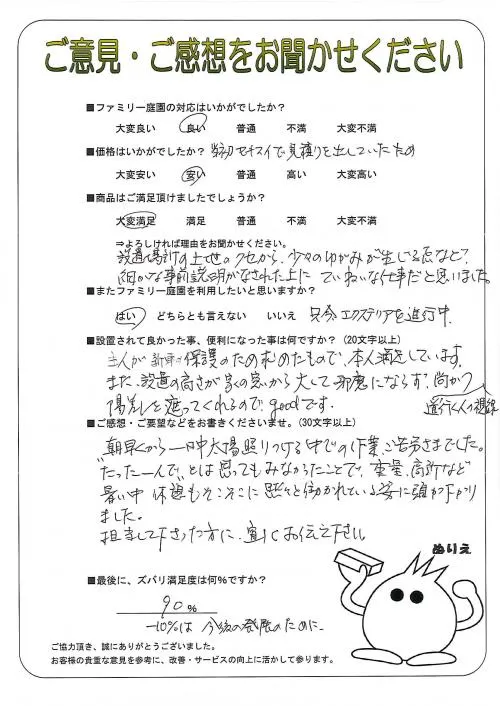 ご意見・ご感想をお聞かせください
■ファミリー庭園の対応はいかがでしたか?
大変良い 良い 普通 不満 大変不満
■価格はいかがでしたか? 当初セキスイで見積りを出していたため
大変安い 安い 普通 高い 大変高い
■商品はご満足頂けましたでしょうか?
大変満足 満足 普通 不満 大変不満
⇒よろしければ理由をお聞かせください。
設置場所の土地のクセから、少々のゆがみが生じる点など、
細かな事前説明がなされた上に ていねいな仕事だと思いました。
■またファミリー庭園を利用したいと思いますか?
はい どちらとも言えない いいえ 只今エクステリアを進行中
■設置されて良かった事、便利になった事は何ですか?(20文字以上)
主人が新車の保護のため求めたもので、本人満足しています。
また、設置の高さが家の窓から大して邪魔にならず、尚かつ
陽差しを遮ってくれるのでgoodです。
道行く人の視線
■ご感想・ご要望などをお書きくださいませ。(30文字以上)
朝早くから一日中太陽照りつける中での作業、ご苦労さまでした。
"たった一人で"とは思ってもみなかったことで、重量、高所など
暑い中 休憩もそこそこに黙々と働かれている姿に頭が下がり
ました。
担当して下さった方に、宜しくお伝え下さい。
ぬりえ
■最後に、ズバリ満足度は何%ですか?
90 %
-10%は 今後の発展のために
ご協力頂き、誠にありがとうございました。
お客様の貴重な意見を参考に、改善・サービスの向上に活かして参ります。